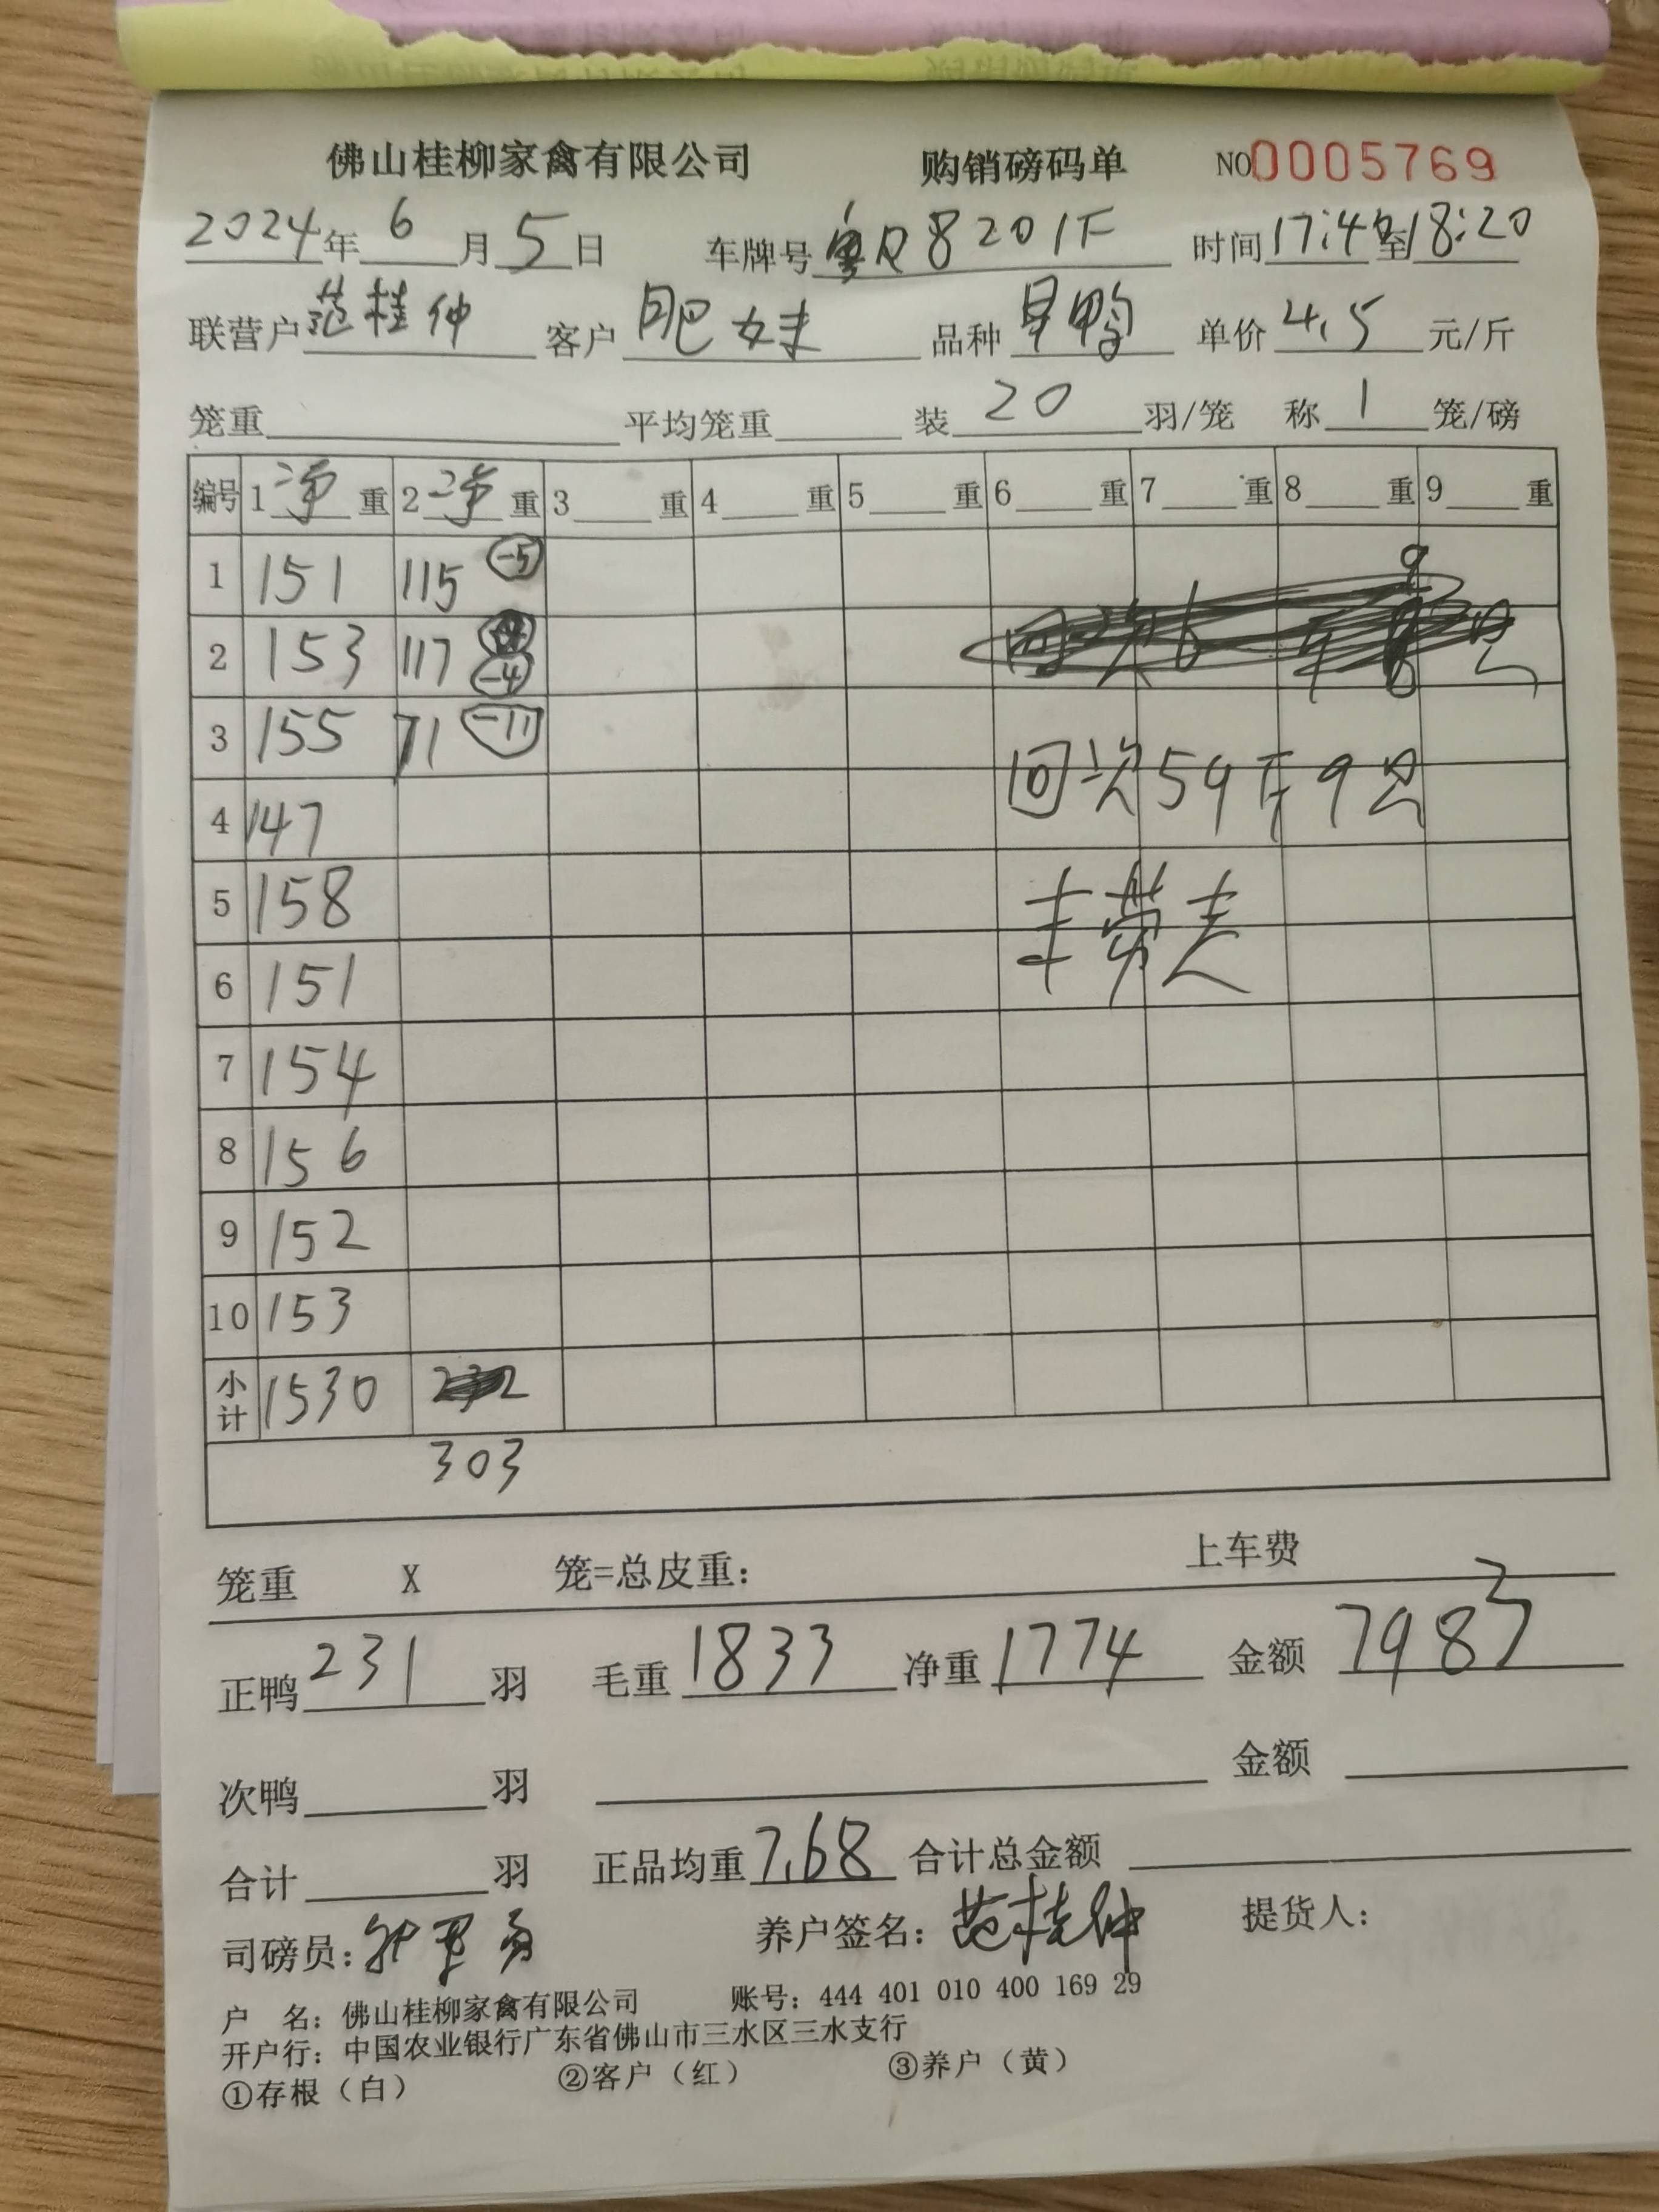 佛山桂柳家禽有限公司 购销磅码单 NO0005769
2024年6月5日 车牌号粤R8201F 时间17:40至18:20
联营户范桂仲 客户肥妹 品种旱鸭 单价4.5元/斤
笼重 平均笼重 装20羽/笼 称1笼/磅
编号 1净重 2净重 3重 4重 5重 6重 7重 8重 9重
1 151 115 -5
2 153 117 -4
3 155 71 -11 回次59斤9只
4 147
5 158
6 151
7 154
8 156
9 152
10 153
小计 1530
303
笼重 X 笼=总皮重: 上车费
正鸭231羽 毛重1833 净重1774 金额7983
次鸭羽 金额
合计羽 正品均重7.68 合计总金额
司磅员: 养户签名:范桂仲 提货人:
户 名:佛山桂柳家禽有限公司 账号:444 401 010 400 169 29
开户行:中国农业银行广东省佛山市三水区三水支行
①存根(白) ②客户(红) ③养户(黄)